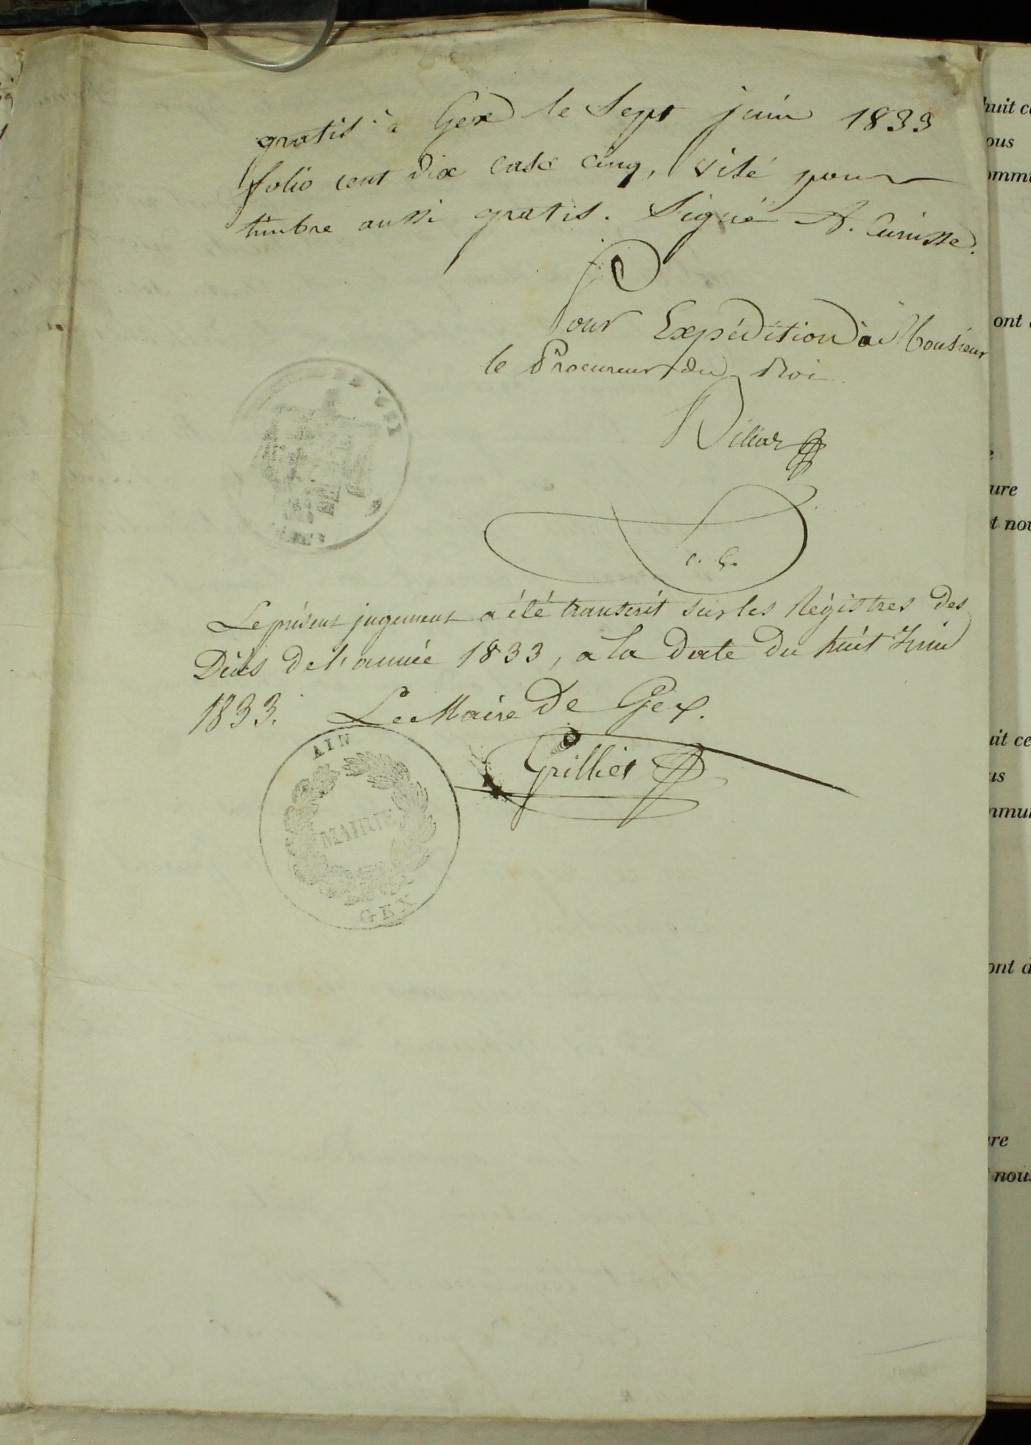 gratis à Gex le Sept juin 1833
folio cent dix case cinq, visé pour
timbre aussi gratis. Signé A. Cunisse.
Pour Expédition à Monsieur
le Procureur du Roi
c. G.
Le présent jugement a été transcrit sur les Régistres des
Décès de l'année 1833, a la date du huit Juin
1833. Le Maire De Gex.
Grillet
AIN
MAIRIE
GEX
huit ce
ous
ommu
ont
ure
t nou
uit ce
us
mmu
ont d
re
nous